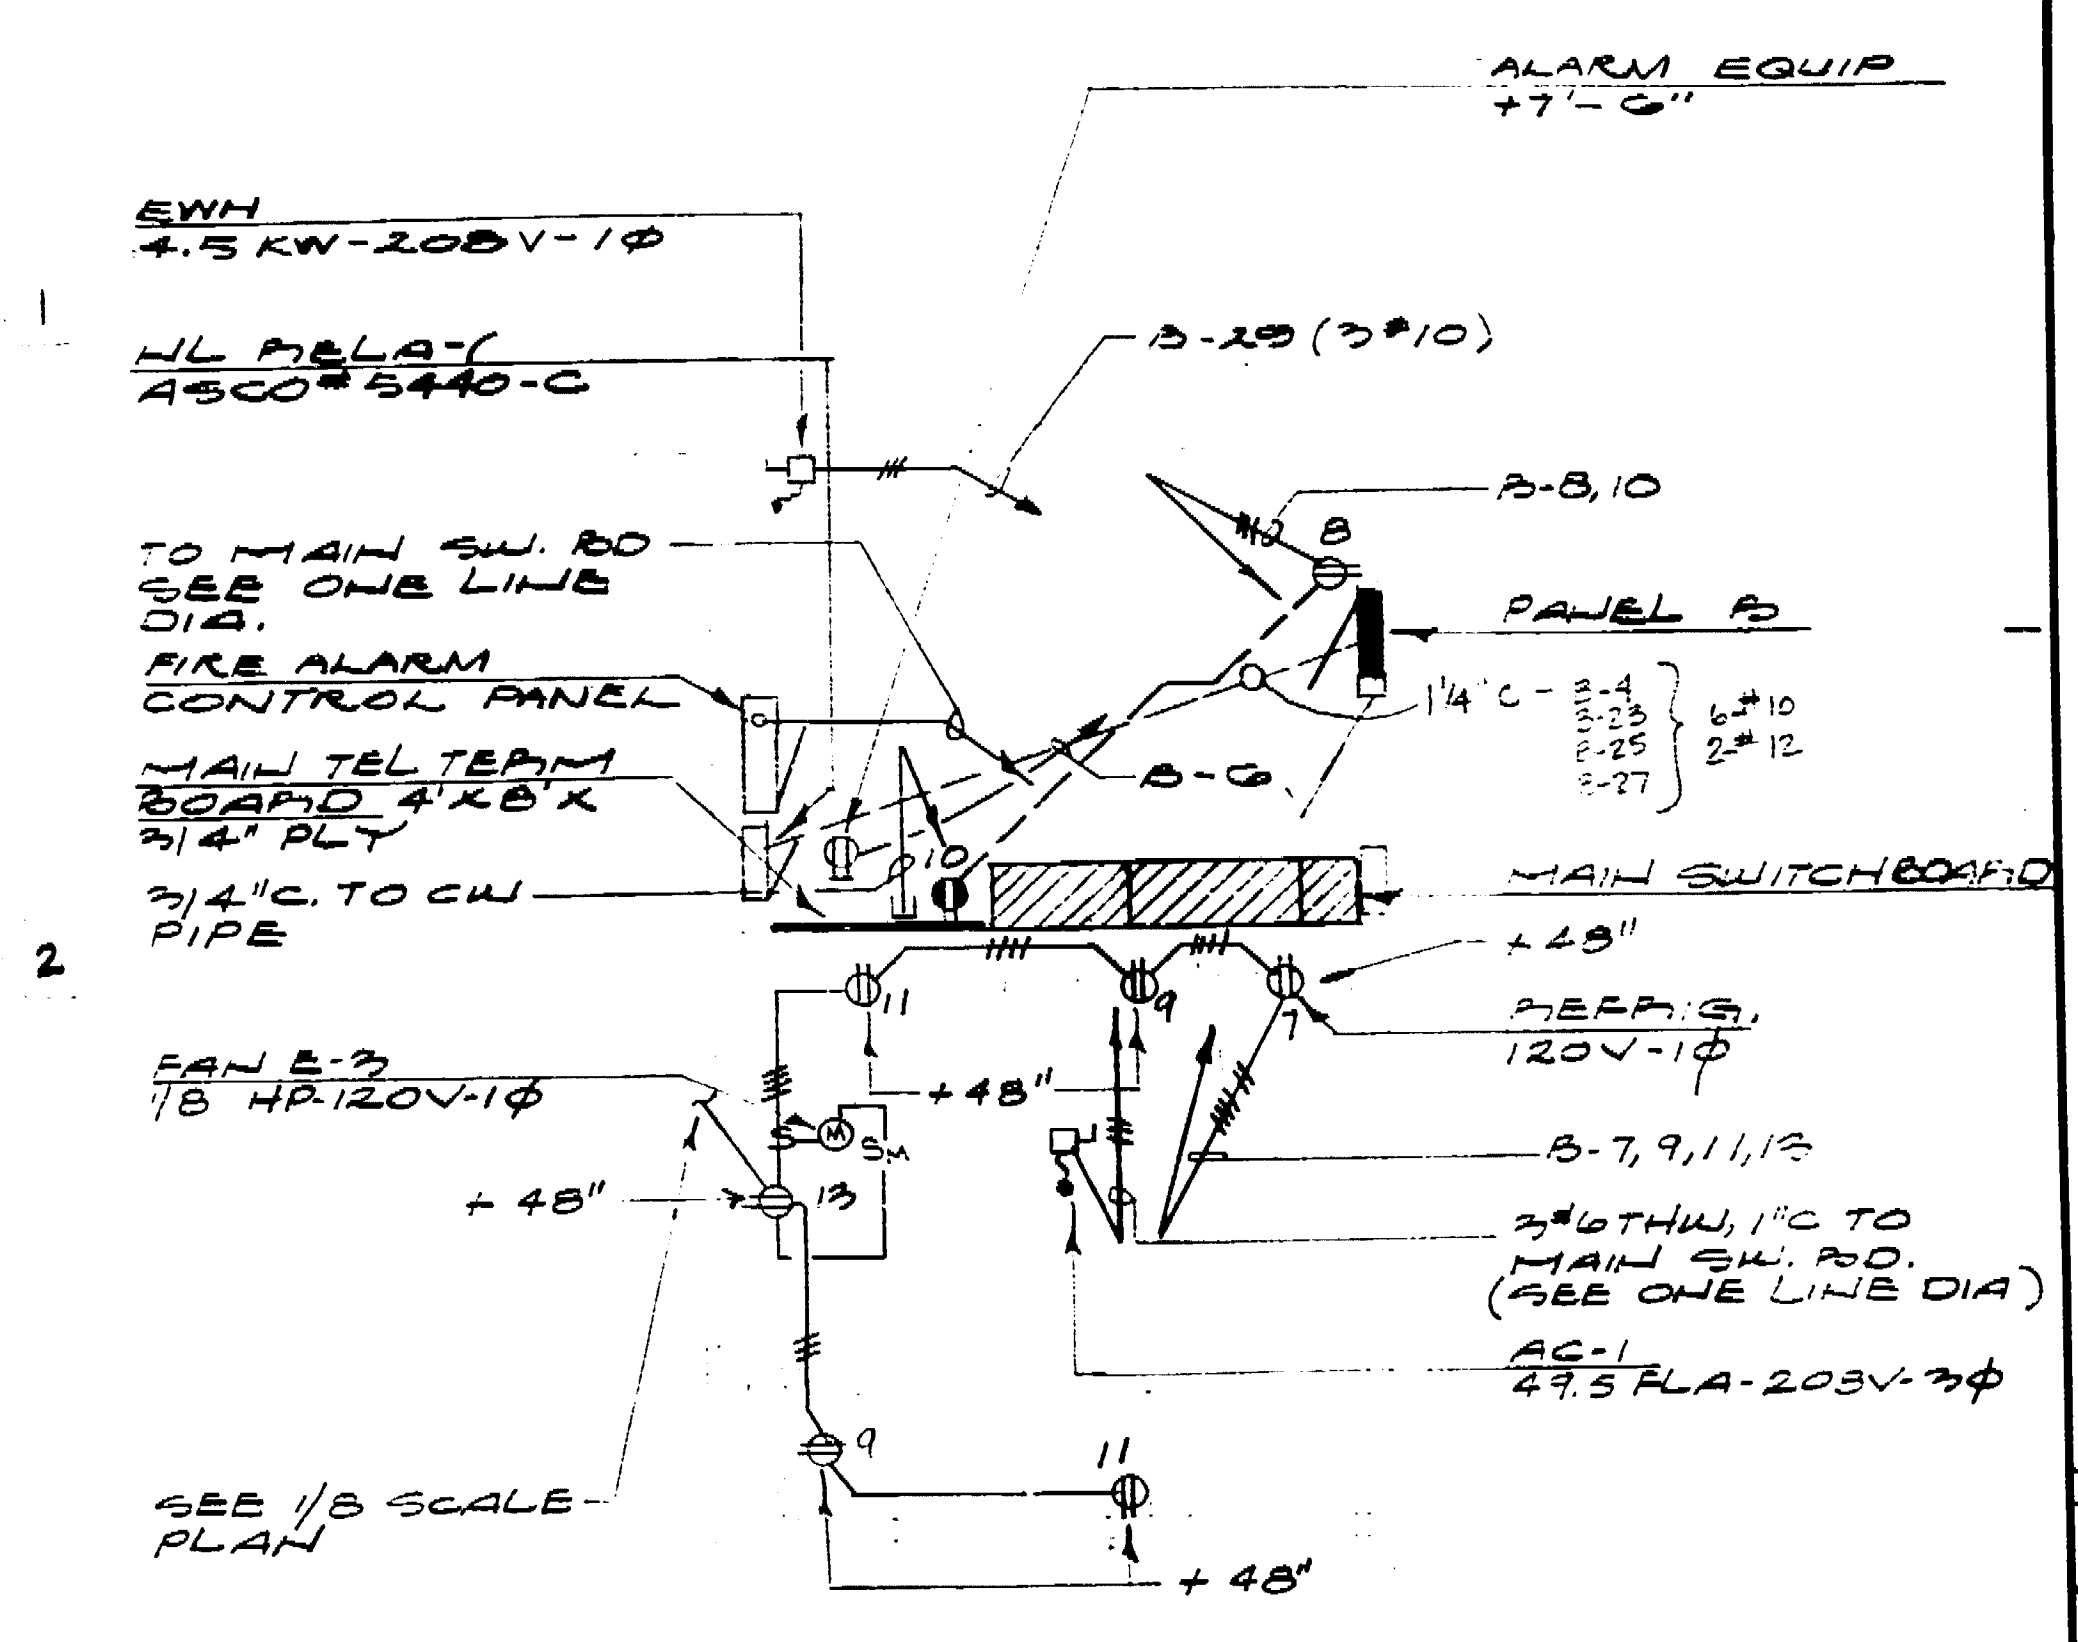 ALARM EQUIP
+7'-6"
EWH
4.5 KW-208V-1Ø
1
B-29 (3#10)
ASCO # 5440-C
B-8, 10
8
TO MAIN SW. BD
SEE ONE LINE
DIA.
PANEL B
FIRE ALARM
CONTROL PANEL
1 1/4" C -
B-4
B-23
B-25
B-27
6-#10
2-#12
MAIN TEL TERM
BOARD 4'X8'X
3/4" PLY
B-6
10
MAIN SWITCHBOARD
3/4"C. TO CW
PIPE
2
+48"
11
9
7
REFRIG.
120V-1Ø
FAN E-3
1/8 HP-120V-1Ø
+48"
S
M
SM
B-7, 9, 11, 13
+48"
13
3#6 THW, 1"C TO
MAIN SW. BD.
(SEE ONE LINE DIA)
AC-1
49.5 FLA-208V-3Ø
9
11
SEE 1/8 SCALE
PLAN
+48"